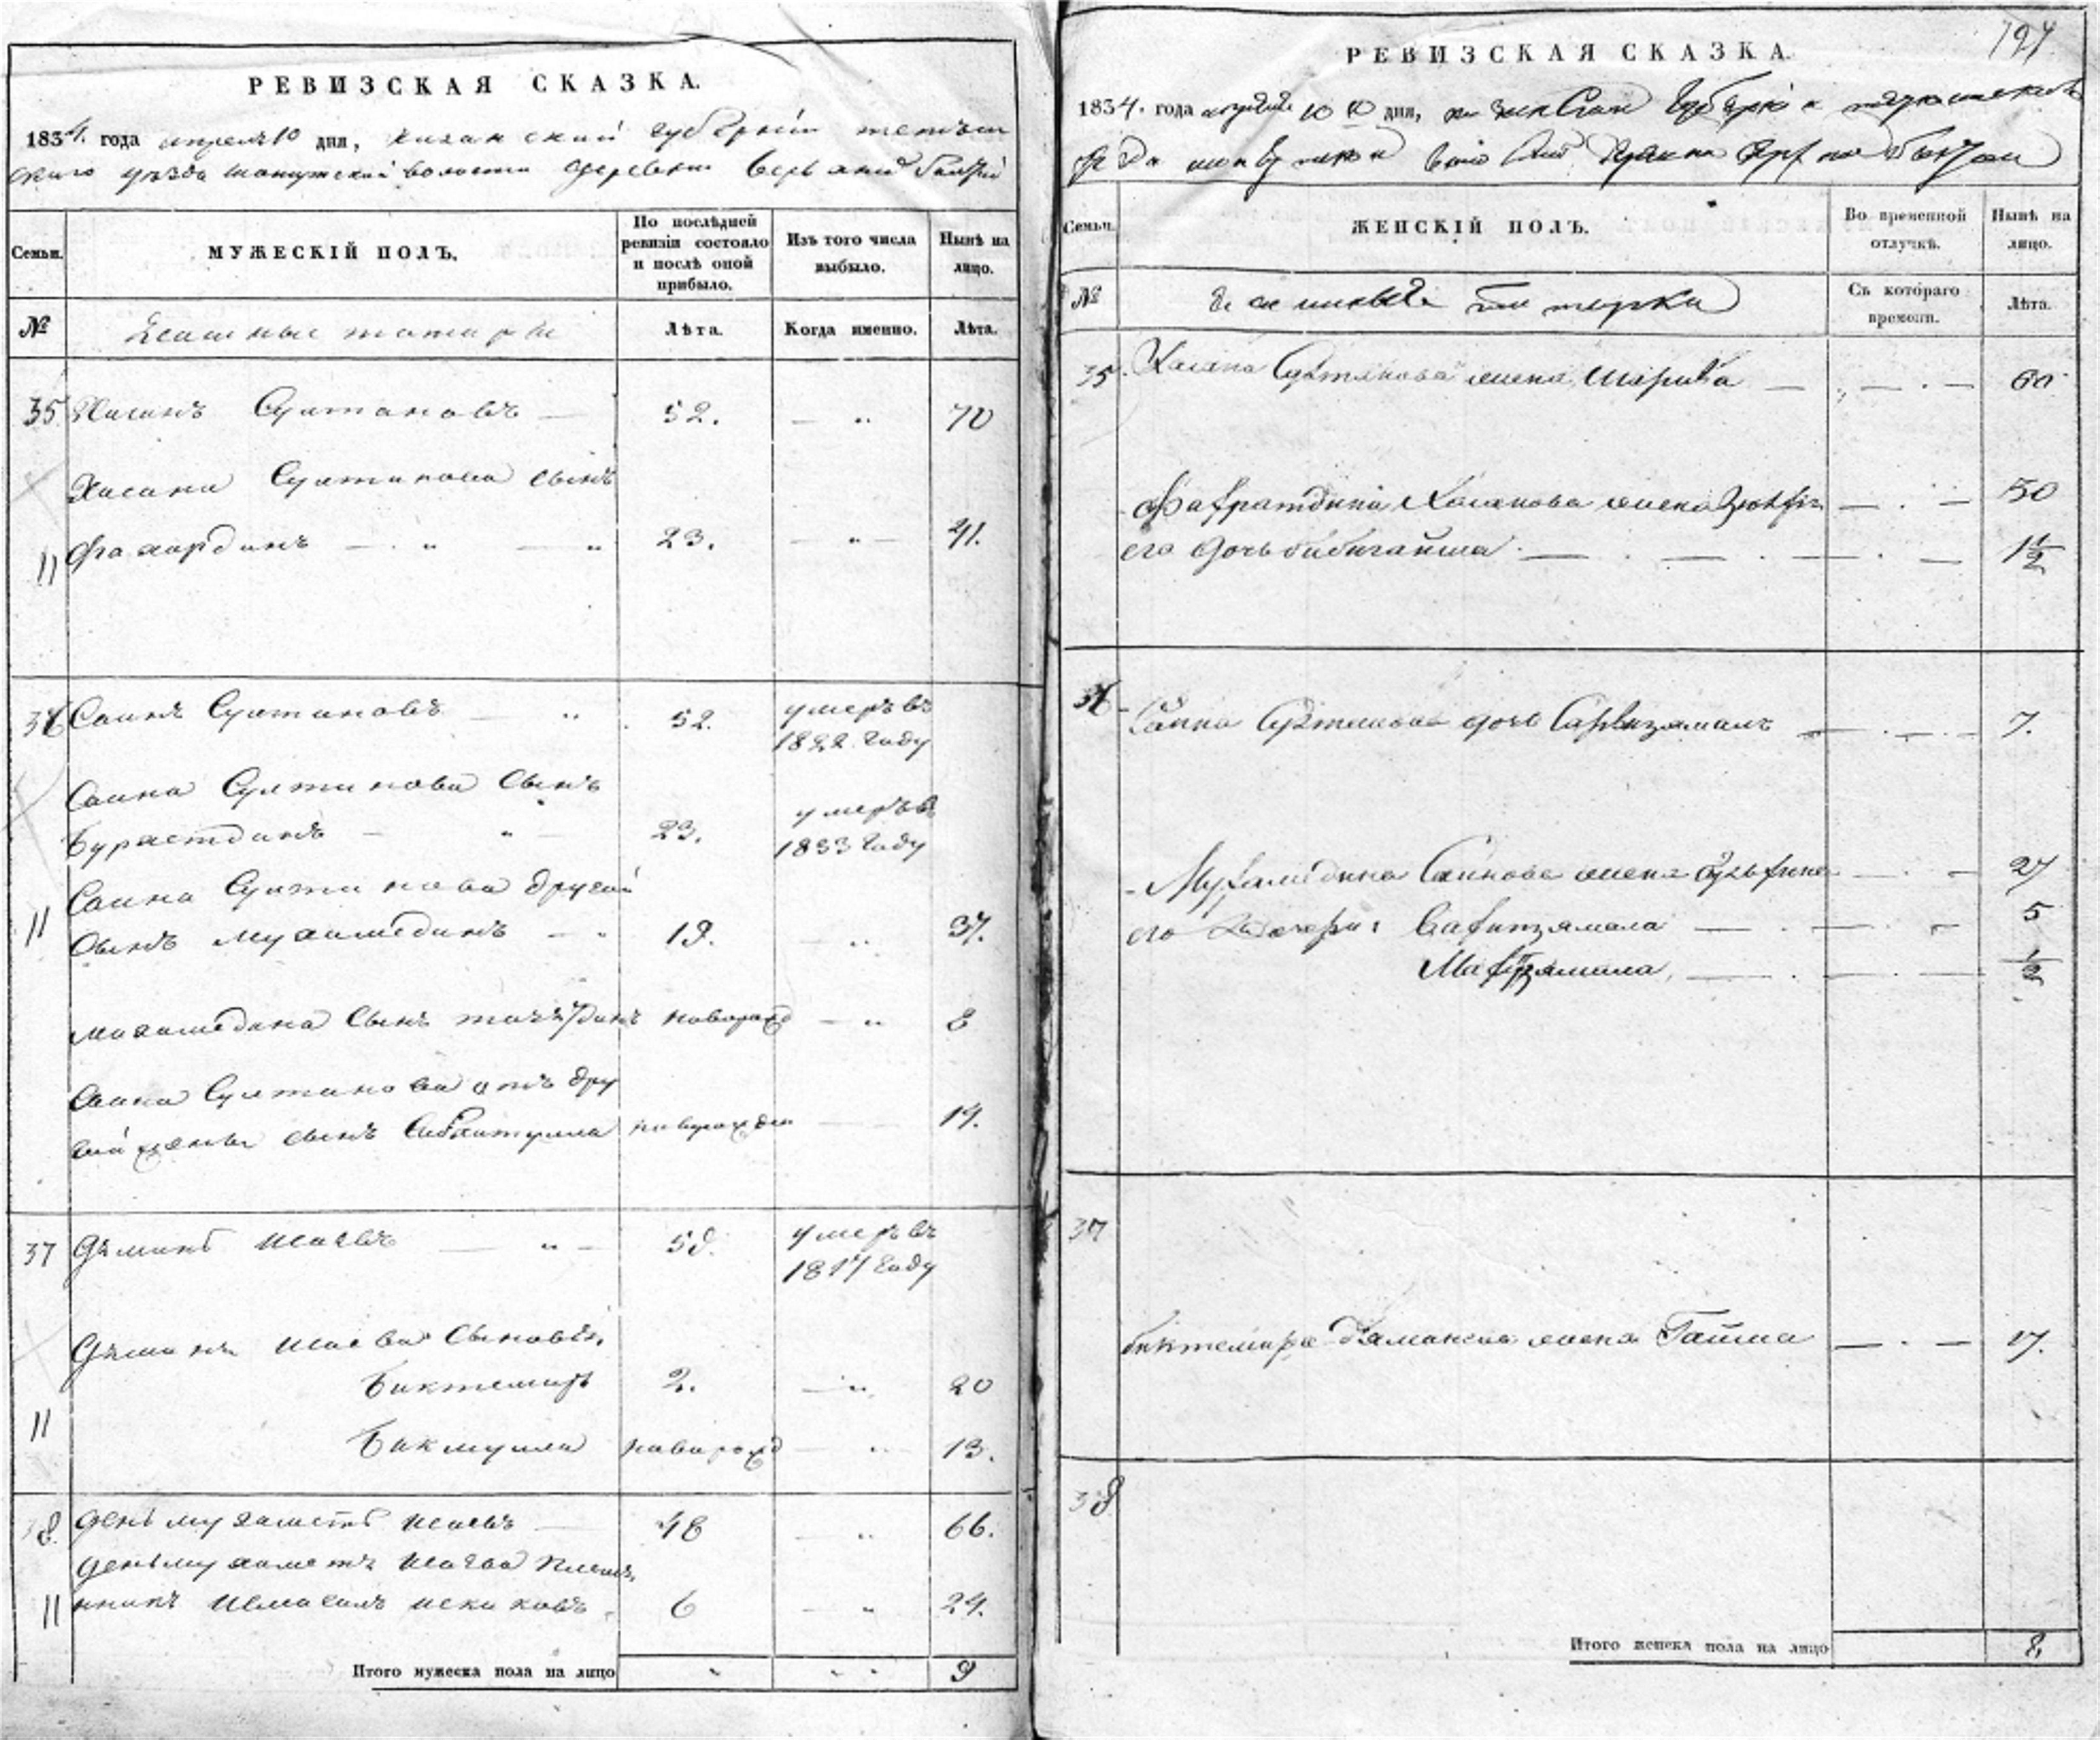 РЕВИЗСКАЯ СКАЗКА.
1834. года апреля 10 дня, Казанской губернии тетюш
скаго уезда шонгутской волости деревни
Семьи. МУЖЕСКІЙ ПОЛЪ. По послѣдней ревизіи состояло и послѣ оной прибыло. Изъ того числа выбыло. Нынѣ на лицо.
№ Ясашные татары Лѣта. Когда именно. Лѣта.
35 Хасанъ Султановъ — 52. — „ 70
Хасана Султанова сынъ
11 Фахардинъ — „ — „ 23. — „ — 41.
36 Саинъ Султановъ — „ 52. умеръ въ
1822 году
Саина Султанова сынъ
Бурастдинъ — „ — 23. умеръ въ
1833 году
Саина Султанова другой
11 сынъ мухамединъ — „ 19. — „ 37.
мухамедина сынъ новорожд — „ 8
Саина Султанова отъ дру
гой жены сынъ новорожден — 14.
37 Дѣманъ Исаевъ — „ — 58. умеръ въ
1817 году
Дѣмана Исаева сыновья,
Биктемиръ 2. — „ 20
11
Бикмулла новорожд „ 13.
38. деньмухаметъ Исаевъ — 48 — „ 66.
деньмухаметъ Исаева племя
11 нникъ Исмагилъ Исхаковъ. 6 — „ 24.
Итого мужеска пола на лицо „ „ „ 9
797
РЕВИЗСКАЯ СКАЗКА.
1834. года апреля 10 дня, Казанской губернии тетюшскаго
Семьи. ЖЕНСКІЙ ПОЛЪ. Во временной отлучкѣ. Нынѣ на лицо.
№ Ясашные татарки Съ котораго времени. Лѣта.
35. Хасана Султанова жена Шарифа — „ — . — 60
Фахратдина Хасанова жена — . — 30
его дочь бибигайша. — . — . — . — 1½
36 Саина Султанова дочь Сарвизямалъ — . — . — 7.
Мухамедина Саинова жена — . — 27
его дочери: Сафизямала — . — . — 5
Мафузямала, — . — . — ½
37
биктемира Даманова жена Гайша — . — 17.
38
Итого женска пола на лицо 8,